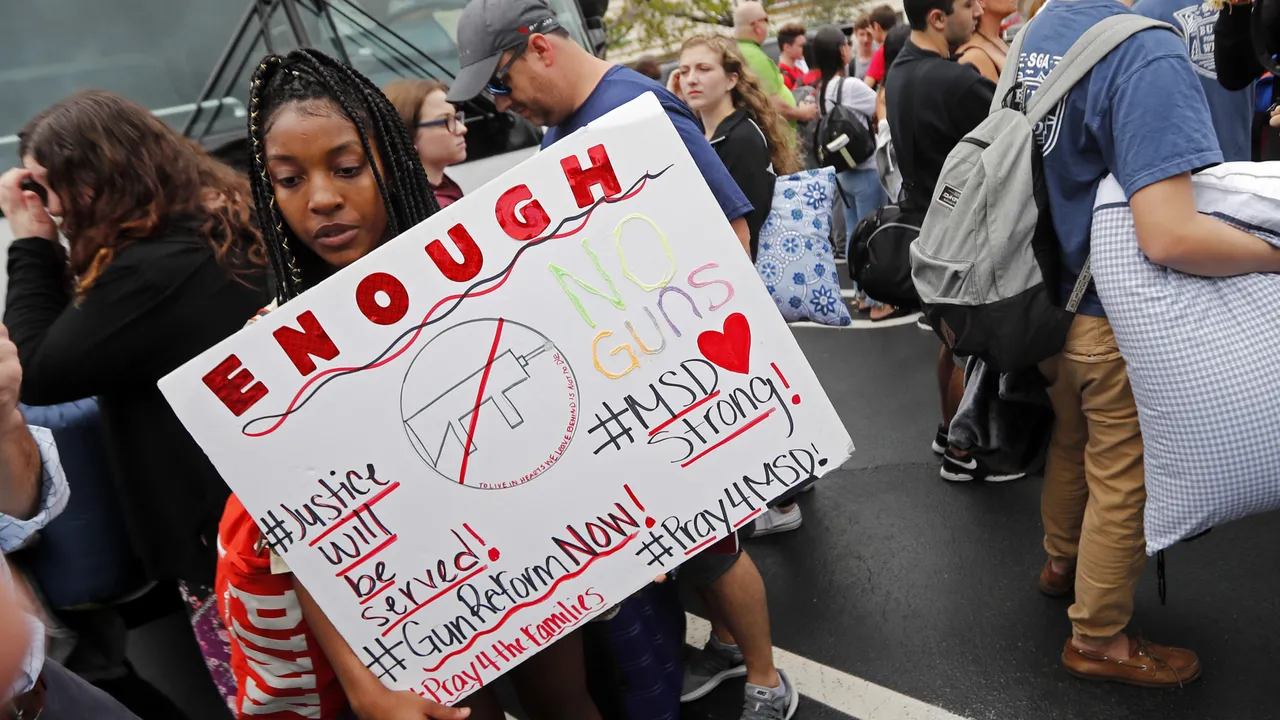 ENOUGH
NO
GUNS
#MSD
Strong!
TO LIVE IN HEARTS WE LEAVE BEHIND IS NOT TO DIE
#Justice
will
be
served!
#GunReformNow!
#Pray4MSD!
#Pray4theFamilies
PINK
-SGA